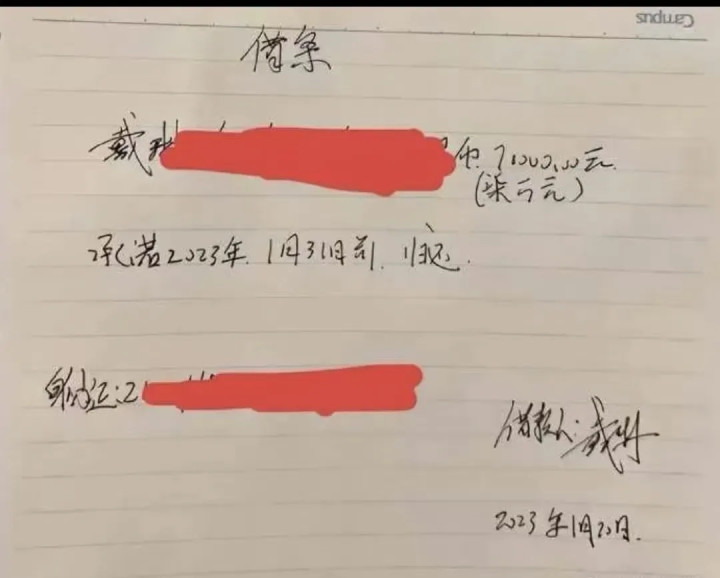 Campus
借条
戴琳
币 71000.00元
(柒万元)
承诺2023年 1月31日前 归还.
身份证:2
借款人:戴琳
2023年1月20日.